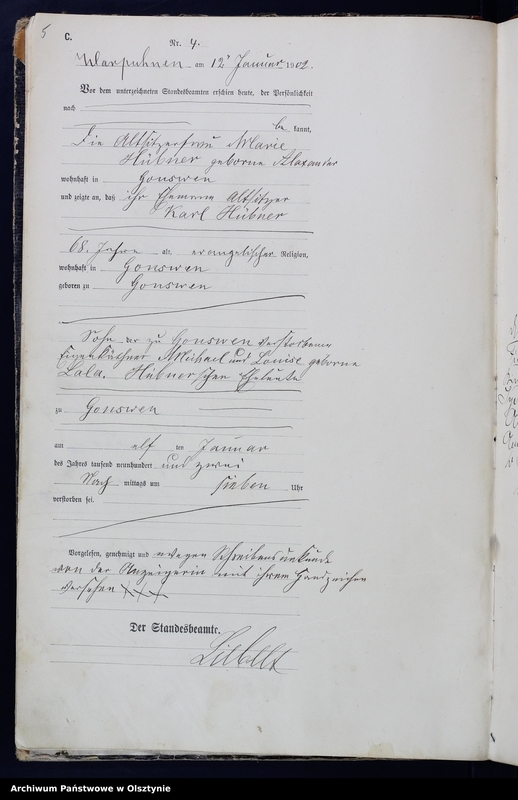 5
C.
Nr. 4.
Warpuhnen am 12ten Januar 1902.
Vor dem unterzeichneten Standesbeamten erschien heute, der Persönlichkeit
nach
be kannt,
die Altsitzerfrau Marie
Hübner geborne Alexander
wohnhaft in Gonswen
und zeigte an, daß ihr Ehemann Altsitzer
Karl Hübner
68 Jahre alt, evangelischer Religion,
wohnhaft in Gonswen
geboren zu Gonswen
Sohn der zu Gonswen verstorbenen
Eigenkäthner Michael und Louise geborne
Lala, Hübnerschen Eheleute
zu Gonswen
am elf ten Januar
des Jahres tausend neunhundert und zwei
Nach mittags um sieben Uhr
verstorben sei.
Vorgelesen, genehmigt und wegen Schreibensunkunde
von der Anzeigerin mit ihrem Handzeichen
versehen XXX
Der Standesbeamte.
Archiwum Państwowe w Olsztynie